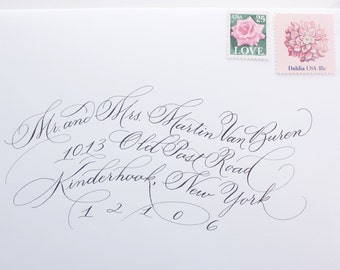 USA 25
LOVE
Dahlia USA 18c
Mr. and Mrs. Martin Van Buren
1013 Old Post Road
Kinderhook, New York
12106